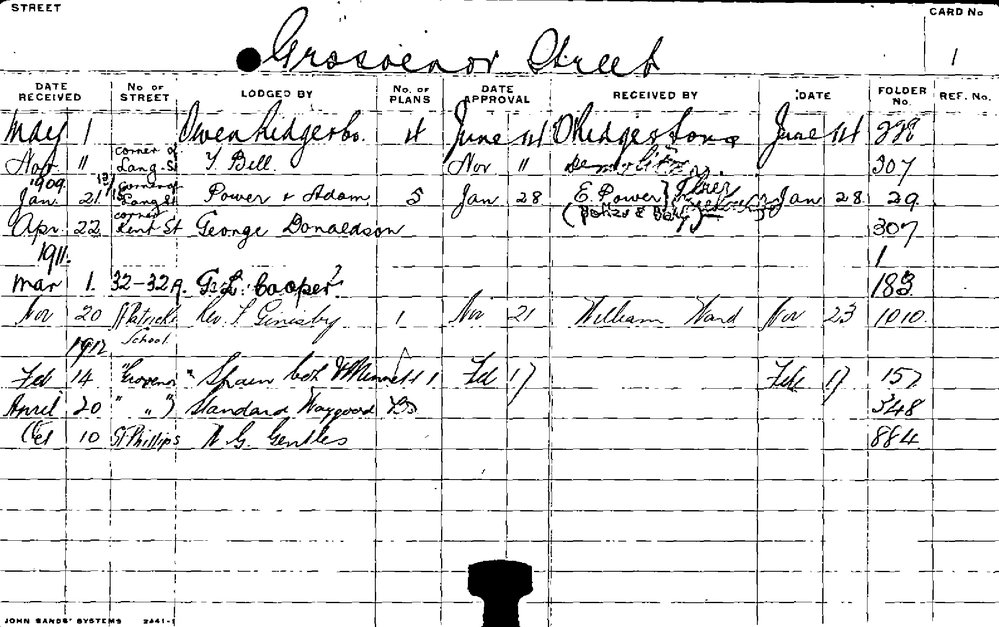 STREET
CARD No
Grosvenor Street
1
DATE RECEIVED No OF STREET LODGED BY No. OF PLANS DATE APPROVAL RECEIVED BY DATE FOLDER No. REF. No.
May 1 Owen Ridge & Co. 4 June 14 O Ridge & Sons June 14 228
Nov 11 corner of Lang St T. Bell. Nov 11 307
1909
Jan. 21 corner of Lang St Power & Adam 5 Jan 28 E. Power Jan 28 29
Apr. 22 corner Kent St George Donaldson 307
1911. 1
Mar 1. 32-32A. G. L. Cooper 183
Nov 20 St Patricks School Rev. 1 Nov 21 William Ward Nov 23 1010
1912
Feb 14 "Grovenor" Spain & Cosh 1 Feb 17 Feb 17 157
April 20 " " Standard Waygood 348
Oct 10 St Phillips N. G. Gentles 884
JOHN SANDS' SYSTEMS 2441-1